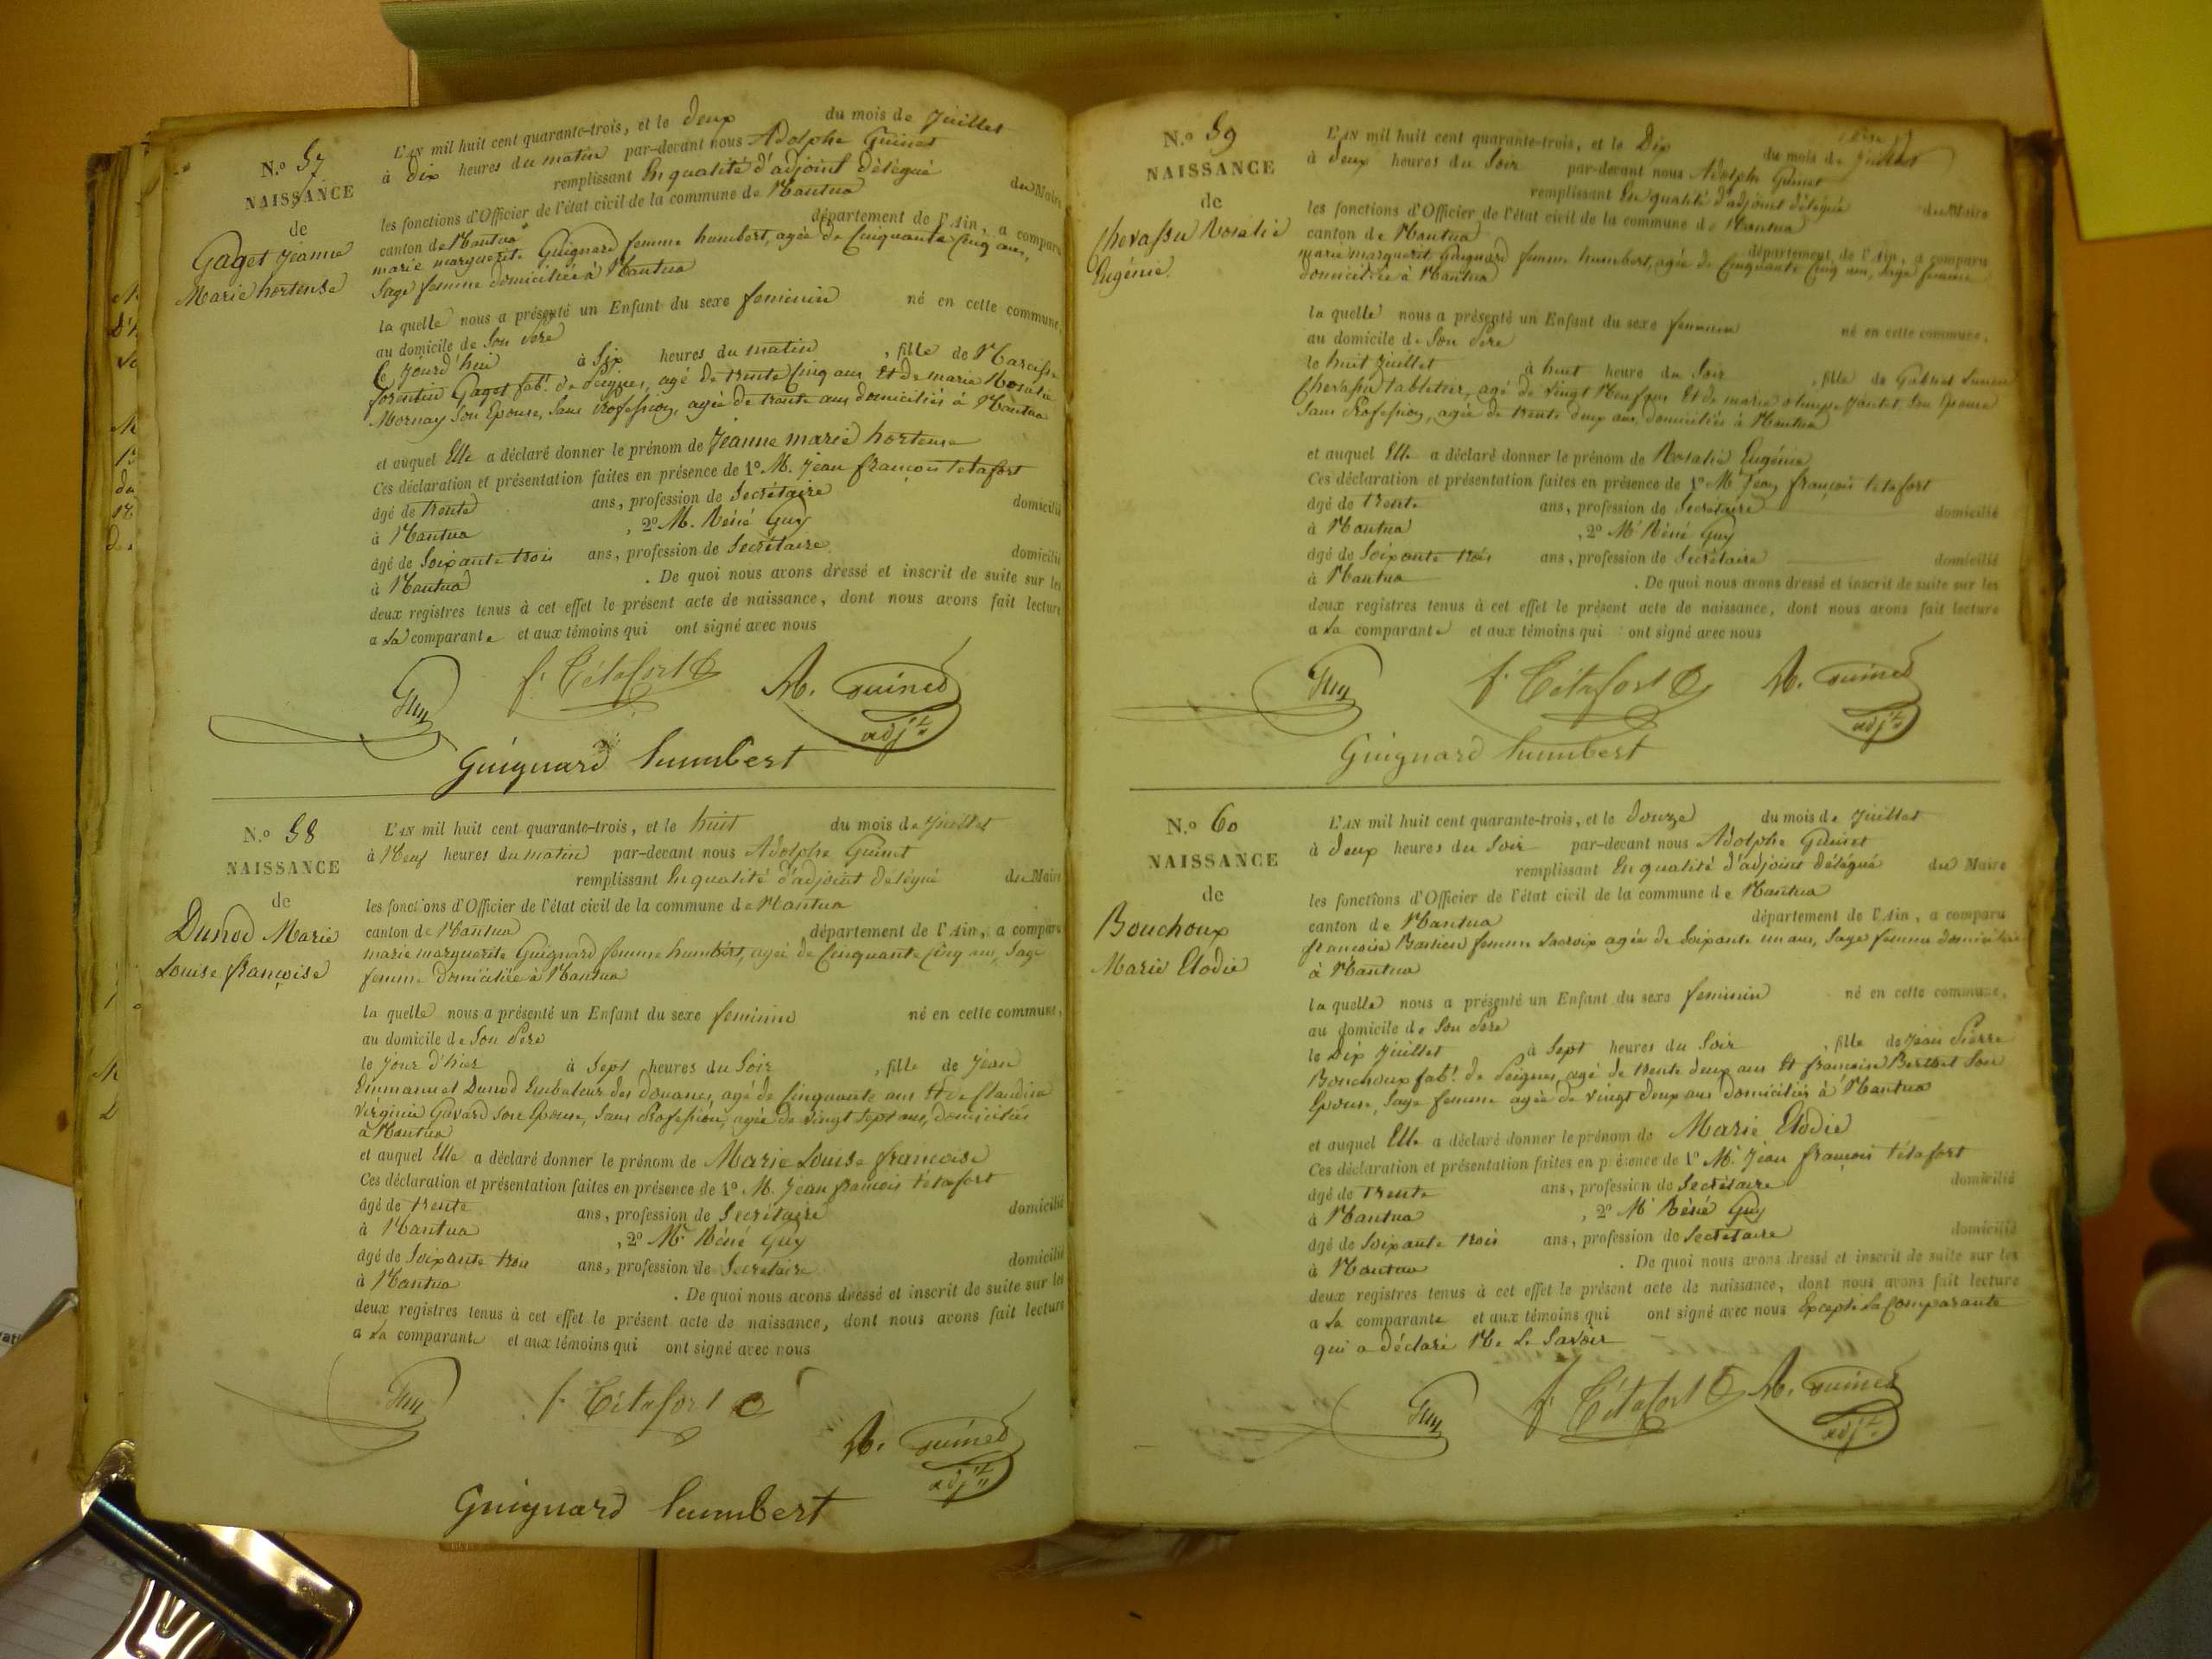 N.o 57
NAISSANCE
de
Gaget Jeanne
Marie hortense
L'AN mil huit cent quarante-trois, et le deux du mois de Juillet
à Dix heures du matin par-devant nous Adolphe Guinet
remplissant En qualité d'adjoint délégué du Maire
les fonctions d'Officier de l'état civil de la commune de Nantua
canton de Nantua département de l'Ain, a comparu
marie marguerite Guignard femme humbert, agée de Cinquante Cinq ans,
Sage femme domiciliée à Nantua
la quelle nous a présenté un Enfant du sexe feminin né en cette commune,
au domicile de Son père
Ce jourd'hui à Six heures du matin, fille de Narcisse
forentin Gaget fabt. de Peignes, agé de trente Cinq ans Et de marie Rosalie
Mornay Son Epouse, Sans Profession, agée de trente ans domiciliés à Nantua
et auquel Elle a déclaré donner le prénom de Jeanne marie hortense
Ces déclaration et présentation faites en présence de 1o M. Jean françois tétafort
âgé de trente ans, profession de Secrétaire domicilié
à Nantua, 2o M. Réné Guy
âgé de Soixante trois ans, profession de Secrétaire domicilié
à Nantua. De quoi nous avons dressé et inscrit de suite sur les
deux registres tenus à cet effet le présent acte de naissance, dont nous avons fait lecture
a La comparante et aux témoins qui ont signé avec nous
Guy f. Tétafort A. Guinet
adjt
Guignard humbert
N.o 58
NAISSANCE
de
Dunod Marie
Louise françoise
L'AN mil huit cent quarante-trois, et le huit du mois de Juillet
à Neuf heures du matin par-devant nous Adolphe Guinet
remplissant En qualité d'adjoint délégué du Maire
les fonctions d'Officier de l'état civil de la commune de Nantua
canton de Nantua département de l'Ain, a comparu
marie marguerite Guignard femme humbert, agée de Cinquante Cinq ans, Sage
femme domiciliée à Nantua
la quelle nous a présenté un Enfant du sexe feminin né en cette commune,
au domicile de Son Père
le jour d'hier à Sept heures du Soir, fille de Jean
Emmanuel Dunod Embaleur des douanes, agé de Cinquante ans Et de Claudine
Virginie Gavard son Epouse, Sans Profession, agée de vingt Sept ans, domiciliés
à Nantua
et auquel Elle a déclaré donner le prénom de Marie Louise françoise
Ces déclaration et présentation faites en présence de 1o M. Jean françois tétafort
âgé de trente ans, profession de Secrétaire domicilié
à Nantua, 2o Mr Réné Guy
âgé de Soixante trois ans, profession de Secretaire domicilié
à Nantua. De quoi nous avons dressé et inscrit de suite sur les
deux registres tenus à cet effet le présent acte de naissance, dont nous avons fait lecture
a La comparante et aux témoins qui ont signé avec nous
Guy f. Tétafort
A. Guinet
adjt
Guignard humbert
N.o 59
NAISSANCE
de
Chevassu Rosalie
Eugénie
L'AN mil huit cent quarante-trois, et le Dix du mois de Juillet
à deux heures du Soir par-devant nous Adolphe Guinet
remplissant En qualité d'adjoint délégué du Maire
les fonctions d'Officier de l'état civil de la commune de Nantua
canton de Nantua département de l'Ain, a comparu
marie marguerit Guignard femme humbert, agée de Cinquante Cinq ans, Sage femme
domiciliée à Nantua
la quelle nous a présenté un Enfant du sexe feminin né en cette commune,
au domicile de Son Père
le huit Juillet à huit heure du Soir, fille de Gabriel
Chevassu tabletier, agé de vingt Neuf ans Et de marie Son Epouse
Sans Profession, agée de trente deux ans domiciliés à Nantua
et auquel Elle a déclaré donner le prénom de Rosalie Eugénie
Ces déclaration et présentation faites en présence de 1o M Jean françois tétafort
âgé de trente ans, profession de Secrétaire domicilié
à Nantua, 2o Mr Réné Guy
âgé de Soixante trois ans, profession de Secrétaire domicilié
à Nantua. De quoi nous avons dressé et inscrit de suite sur les
deux registres tenus à cet effet le présent acte de naissance, dont nous avons fait lecture
a La comparante et aux témoins qui ont signé avec nous
Guy f. Tétafort A. Guinet
adjt
Guignard humbert
N.o 60
NAISSANCE
de
Bouchoux
Marie Elodie
L'AN mil huit cent quarante-trois, et le douze du mois de Juillet
à deux heures du Soir par-devant nous Adolphe Guinet
remplissant En qualité d'adjoint délégué du Maire
les fonctions d'Officier de l'état civil de la commune de Nantua
canton de Nantua département de l'Ain, a comparu
françoise femme Lacroix agée de Soixante un ans, Sage femme domiciliée
à Nantua
la quelle nous a présenté un Enfant du sexe feminin né en cette commune,
au domicile de Son Père
le Dix Juillet à Sept heures du Soir, fille de Jean Pierre
Bouchoux fabt. de Peignes, agé de trente deux ans Et françoise Berthet Son
Epouse, Sage femme agée de vingt deux ans domiciliés à Nantua
et auquel Elle a déclaré donner le prénom de Marie Elodie
Ces déclaration et présentation faites en présence de 1o M. Jean françois tétafort
âgé de trente ans, profession de Secrétaire domicilié
à Nantua, 2o Mr Réné Guy
âgé de Soixante trois ans, profession de Secretaire domicilié
à Nantua. De quoi nous avons dressé et inscrit de suite sur les
deux registres tenus à cet effet le présent acte de naissance, dont nous avons fait lecture
a La comparante et aux témoins qui ont signé avec nous Excepté La Comparante
qui a déclaré Ne Le Savoir
Guy f. Tétafort A. Guinet
adjt